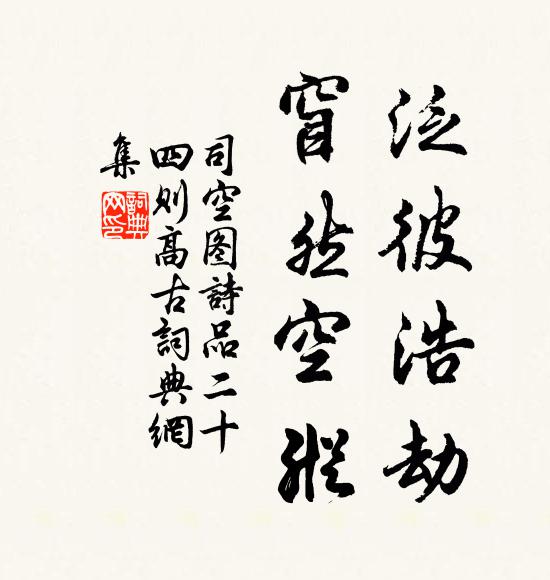 泛彼浩劫
窅然空縱
司空图詩品二十
四则高古詞典網
集
詞典
网印